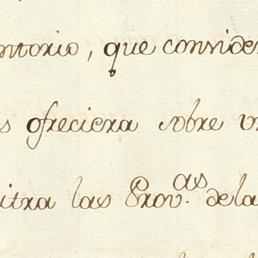 ntorio, que conside
s ofreciera sobre
itra las Prov.as de la